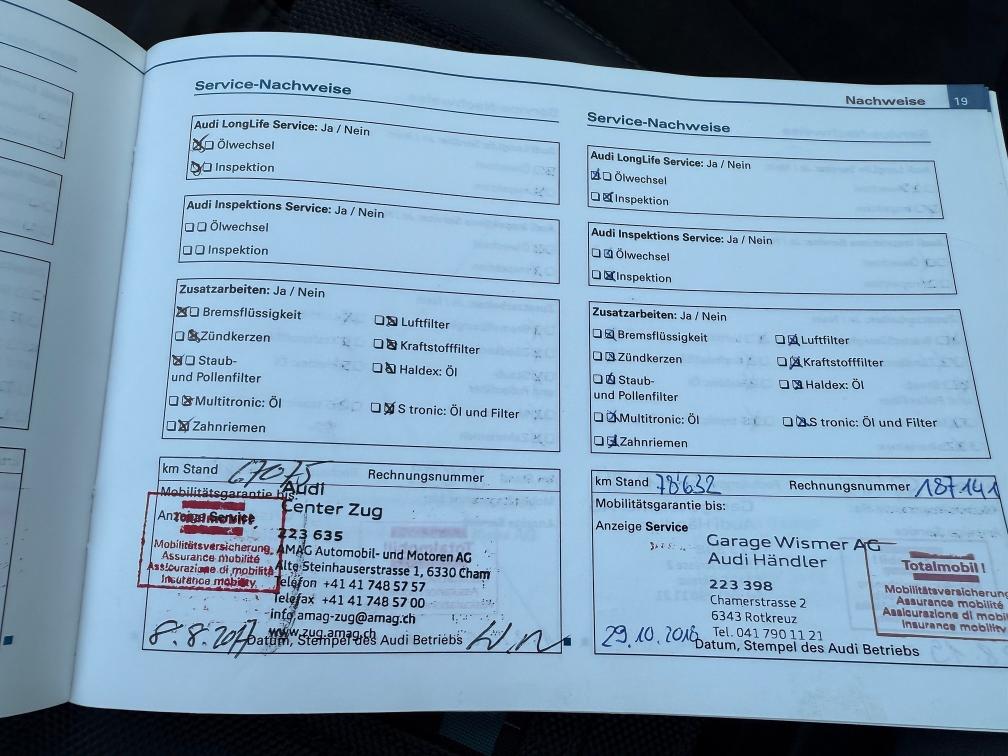 Nachweise 19
Service-Nachweise
Audi LongLife Service: Ja / Nein
Ölwechsel
Inspektion
Audi Inspektions Service: Ja / Nein
Ölwechsel
Inspektion
Zusatzarbeiten: Ja / Nein
Bremsflüssigkeit
Luftfilter
Zündkerzen
Kraftstofffilter
Staub-
und Pollenfilter
Haldex: Öl
Multitronic: Öl
S tronic: Öl und Filter
Zahnriemen
km Stand 67075 Rechnungsnummer
Mobilitätsgarantie bis:
Anzeige Service
Totalmobil!
Mobilitätsversicherung
Assurance mobilité
Assicurazione di mobilità
Insurance mobility
Audi
Center Zug
223 635
AMAG Automobil- und Motoren AG
Alte Steinhauserstrasse 1, 6330 Cham
Telefon +41 41 748 57 57
Telefax +41 41 748 57 00
info.amag-zug@amag.ch
www.zug.amag.ch
8.8.2017
Datum, Stempel des Audi Betriebs
Service-Nachweise
Audi LongLife Service: Ja / Nein
Ölwechsel
Inspektion
Audi Inspektions Service: Ja / Nein
Ölwechsel
Inspektion
Zusatzarbeiten: Ja / Nein
Bremsflüssigkeit
Luftfilter
Zündkerzen
Kraftstofffilter
Staub-
und Pollenfilter
Haldex: Öl
Multitronic: Öl
S tronic: Öl und Filter
Zahnriemen
km Stand 78'632 Rechnungsnummer 187141
Mobilitätsgarantie bis:
Anzeige Service
Garage Wismer AG
Audi Händler
223 398
Chamerstrasse 2
6343 Rotkreuz
Tel. 041 790 11 21
Totalmobil!
Mobilitätsversicherung
Assurance mobilité
Assicurazione di mobil
Insurance mobility
29.10.2018
Datum, Stempel des Audi Betriebs